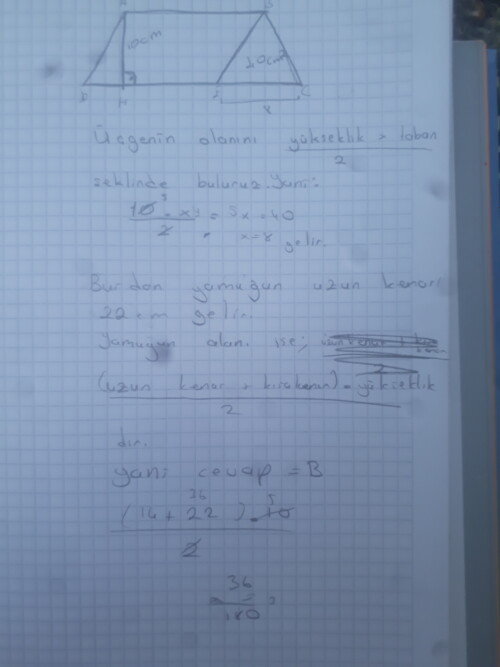 A B
10cm 40cm²
D H E C
x
Üçgenin alanını yükseklik × taban
2
şeklinde buluruz. Yani:
10 5 . x = 5x = 40
2 x=8 gelir.
Burdan yamuğun uzun kenarı
22 cm gelir.
Yamuğun alanı ise;
(uzun kenar + kısa kenar) . yükseklik
2
dir.
yani cevap = B
36 5
(14 + 22) . 10
2
36
180